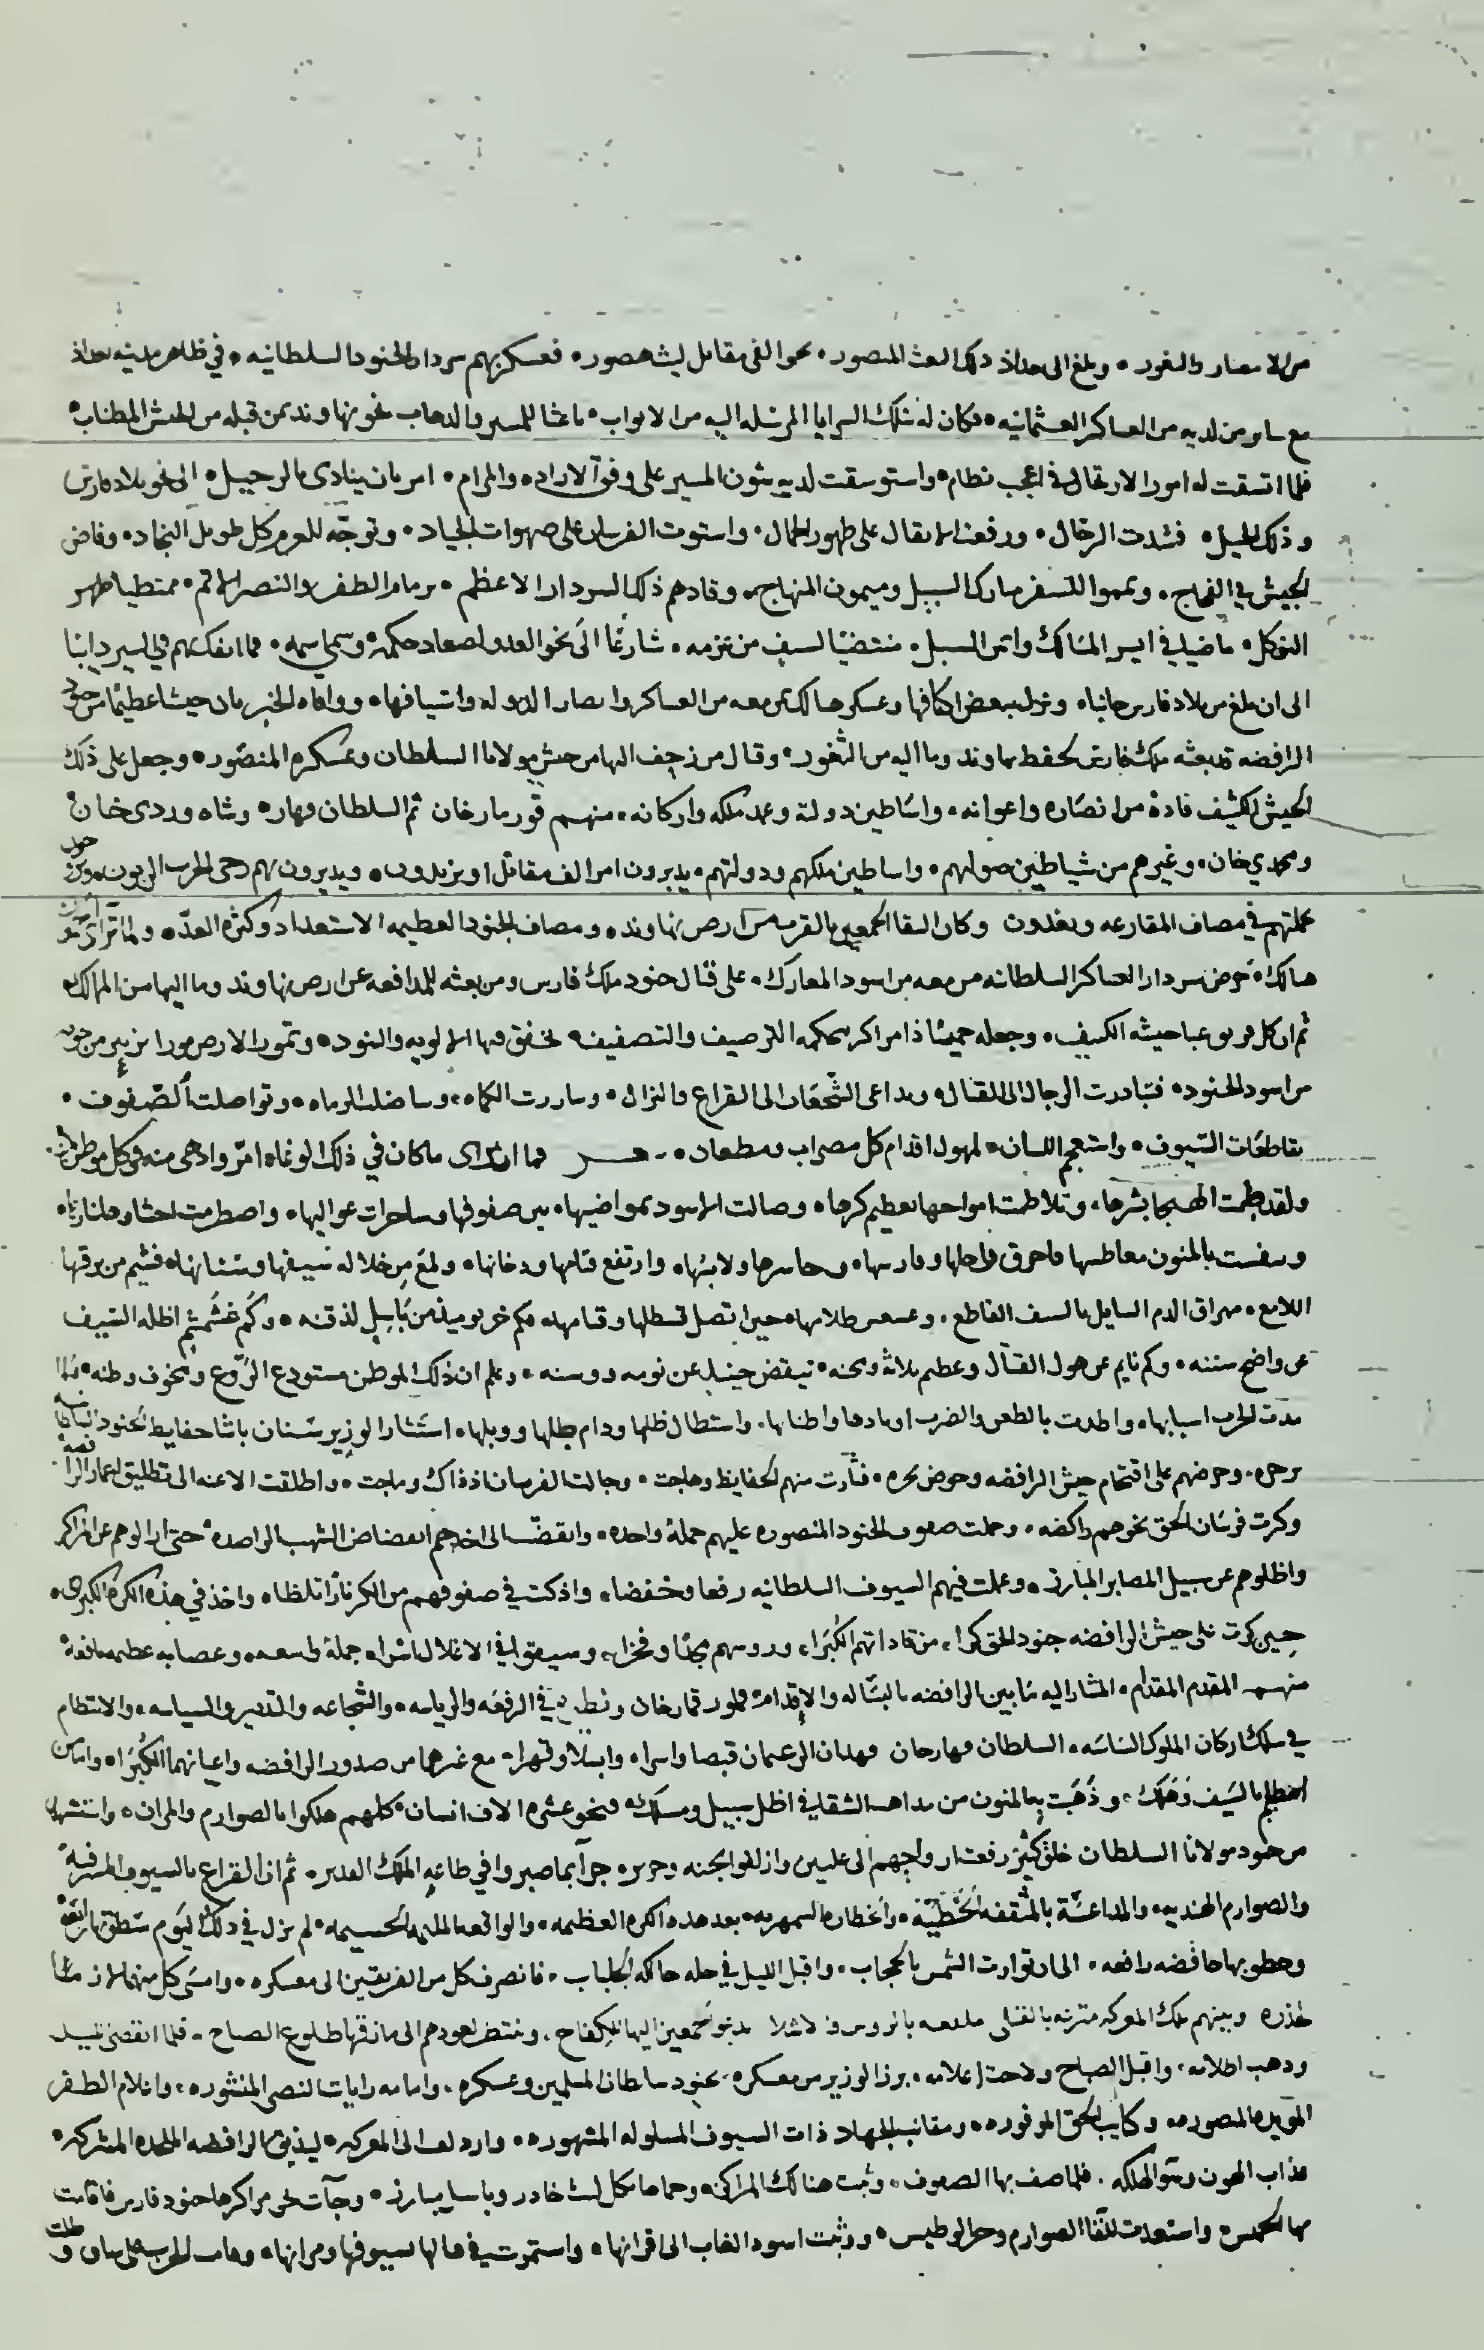 من الامصار والثغور ۰ وبلغ الى بغداد ذلك البعث المنصور ۰ نحوا الف مقاتل ليث هصور ۰ فعسكر بهم سردار الجنود السلطانيه ۰ في ظاهر مدينه بغداد
مع ساير من لديه من العساكر العثمانيه ۰ فكان له تلك السرايا المرسله اليه من الابواب ۰ باعثا للمسير والذهاب نحو نهاوند بمن قبله من الجيش المطناب ۰
فلما اتسقت له امور الارتقال في اعجب نظام ۰ واستوسقت لديه شون المسير على وفق الاراده والمرام ۰ امر بان ينادى بالرحيل ۰ الى نحو بلاد فارس
وذلك الجيل ۰ فشدت الرحال ۰ ورفعت الاثقال على ظهور الجمال ۰ واستوت الفرسان على صهوات الجياد ۰ وتوجه للعزم كل طويل النجاد ۰ وفاض
الجيش في الفجاج ۰ ويمموا للسفر مبارك السبيل وميمون المنهاج ۰ وقادهم ذلك السردار الاعظم ۰ بزمام الظفر والنصر الاتم ۰ ممتطيا ظهر
التوكل ۰ ماضيا في ايسر المسالك واتم السبل ۰ منتضيا لسيف من عزمه ۰ شارعا الى نحو العدو لصعاد حكمه وسمي اسمه ۰ فما انفك بهم في السير دايبا
الى ان بلغ من بلاد فارس جانبا ۰ ونزل ببعض اكنافها وعسكر هنالك بمن معه من العساكر وانصار الدوله واسيافها ۰ ووافاه الخبر بان جيشا عظيما من جنود
الرافضه قد بعثه ملك فارس لحفظ نهاوند وما اليه من الثغور ۰ وقتال من زحف اليها من جيش مولانا السلطان وعسكره المنصور ۰ وجعل على ذلك
الجيش الكثيف قادة من انصاره واعوانه ۰ واساطين دولته وعمد ملكه واركانه ۰ منهم قورمارخان ثم السلطان مهار ۰ وشاه وردى خان
ومحمدي خان ۰ وغيرهم من شياطين صولتهم ۰ واساطين ملكهم ودولتهم ۰ يدبرون امر الف مقاتل او يزيدون ۰ ويديرون بهم رحى الحرب الزبون
حملتهم في مصاف المقارعه ويعدون وكان التقا الجمعين بالقرب من ارض نهاوند ۰ ومصاف الجنود العظيمه الاستعداد وكثرة العدّه ۰ ولما تراى
هنالك ۰ حرض سردار العساكر السلطانيه من معه من اسود المعارك ۰ على قتال جنود ملك فارس ومن بعثه للمدافعه عن ارض نهاوند وما اليها من الممالك
ثم ان كل فريق عبا جيشه الكثيف ۰ وجعله خميسا ذا مراكز محكمه الترصيف والتصفيف ۰ تخفق فيها الالويه والبنود ۰ وتمور الارض مورا
من اسود الجنود ۰ فتبادرت الرجال الى القتال ۰ وتداعى الشجعان الى القراع والنزال ۰ وبارزت الكماه ۰ وتناضلت الرماه ۰ وتواصلت الصفوف ۰
بقاطعات السيوف ۰ واستعجم اللسان ۰ لهول اقدام كل مضراب ومطعان ۰ فما ادراك ما كان في ذلك الوغا ۰ امرّ وادهى منه في كل موطن
ولقد طمت الهيجا بشرها ۰ وتلاطمت امواجها بعظيم كرها ۰ وصالت الاسود بمواضيها ۰ بين صفوفها وساحرات عواليها ۰ واضطرمت احشاوها نارا ۰
وتنفست بالمنون معاطسها فاحرق راجلها وفارسها ۰ وحاسرها ولابسها ۰ وارتفع قتامها ودخانها ۰ ولمع من خلاله سيفها وسنانها ۰ فشيم من برقها
اللامع ۰ مهراق الدم السايل بالسيف القاطع ۰ وعسعس ظلامها ۰ حين اتصل قسطلها وقتامها ۰ فكم خر يوميذ من باسل لذقنه ۰ وكم غشمشم اظله السيف
عن واضح سننه ۰ وكم نايم عن هول القتال وعظيم بلائه ومحنه ۰ تيقض حينيذ عن نومه ووسنه ۰ وعلم ان ذلك الموطن مستودع الروع ومخوف وطنه ۰ فلما
مدت الحرب اسبابها ۰ واطدت بالطعن والضرب اوتادها واطنابها ۰ واستطال ظلها ودام طلها ووبلها ۰ استثار الوزير سنان باشا حفايظ الجنود
وحرضهم على اقتحام جيش الرافضه وخوض بحره ۰ فثارت منهم الحفايظ وهاجت ۰ وجالت الفرسان اذ ذاك وماجت ۰ واطلقت الاعنه الى تطليق اعمار
وكرت فرسان الحق نحوهم راكضه ۰ وحملت صفوف الجنود المنصوره عليهم حملة واحده ۰ وانقضت الى اخذهم انقضاض الشهب الراصده ۰ حتى ازالوهم عن المراكز
واظلوهم عن سبيل المصابر المبارز ۰ وعملت فيهم السيوف السلطانيه رفعا وخفضا ۰ واذكت في صفوفهم من الكر نارا تلظا ۰ واخذ في هذه الكره الكبرى ۰
حين كرت على جيش الرافضه جنود الحق كرا ۰ من قاداتهم الكبرا ۰ وروسهم مجدا وفخرا ۰ وسيقوا في الاغلال اسرا ۰ جملة واسعه ۰ وعصابه عظيمه
منهم المقدم المقدام ۰ المشار اليه ما بين الرافضه بالبساله والاقدام ۰ قورقمارخان ونظيره في الرفعه والرياسه ۰ والشجاعه والتدبير والسياسه ۰ والانتظام
في سلك اركان الملوك الساسه ۰ السلطان مهارخان فهذان الزعيمان قبضا واسرا ۰ وابتلا وقهرا ۰ مع غيرهما من صدور الرافضه واعيانها الكبرا ۰ واما من
اصطلم بالسيف وهلك ۰ وذهبت به المنون من مذاهب الشقا في اظل سبيل ومسلك ۰ فنحو عشرة الاف انسان ۰ كلهم هلكوا بالصوارم والمران ۰ واستشهد
من جنود مولانا السلطان خلق كثير رفعت ارواحهم الى عليين وازلفوا بجنه وحرير ۰ جزآ بما صبروا في طاعه الملك القدير ۰ ثم ان القراع بالسيوف المشرفيه
والصوارم الهنديه ۰ والمداعسة بالمثقفه الخطيّة ۰ والخطاره السمهريه ۰ بعد هذه الكره العظيمه ۰ والواقعه الملمه الجسيمه ۰ لم يزل في ذلك اليوم
وخطوبها خافضه رافعه ۰ الى ان توارت الشمس بالحجاب ۰ واقبل الليل في حله حالكه الجلباب ۰ فانصرف كل من الفريقين الى معسكره ۰ وامسى كل منهما
حذره وبينهم تلك المعركه مترعه بالقتلى ملفعه بالروس والاشلا الجمعين اليها للكفاح ۰ وينتظر لعودهم الى مازقها طلوع الصباح ۰ فلما انقضى الليل
وذهب اظلامه ۰ واقبل الصباح ولاحت اعلامه ۰ برز الوزير من معسكره ۰ بجنود سلطان المسلمين وعسكره ۰ وامامه رايات النصر المنشوره ۰ واعلام الظفر
المويده المنصوره ۰ وكتايب الحق الموفوره ۰ ومقانب الجهاد ذات السيوف المسلوله المشهوره ۰ وازدلف الى المعركه ۰ ليذيق الرافضه الملحده المشركه ۰
عذاب الهون وسو الهلكه ۰ فلما صف بها الصفوف ۰ وثبت هنالك المراكز ۰ وحماها بكل ليث خادر وباسل مبارز ۰ وجآت الى مراكزها جنود فارس فاقامت
بها الخميس ۰ واستعدت للقا الصوارم وحر الوطيس ۰ ووثبت اسود الغاب الى اقرانها ۰ واستموت في مجالها لسيوفها ومرانها ۰ وقامت الحرب على ساق